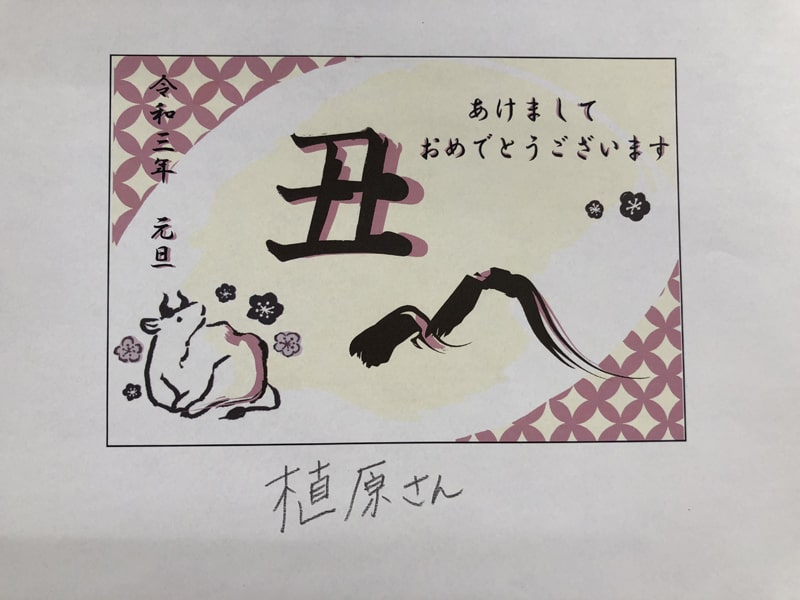 令和三年 元旦
丑
あけまして
おめでとうございます
植原さん